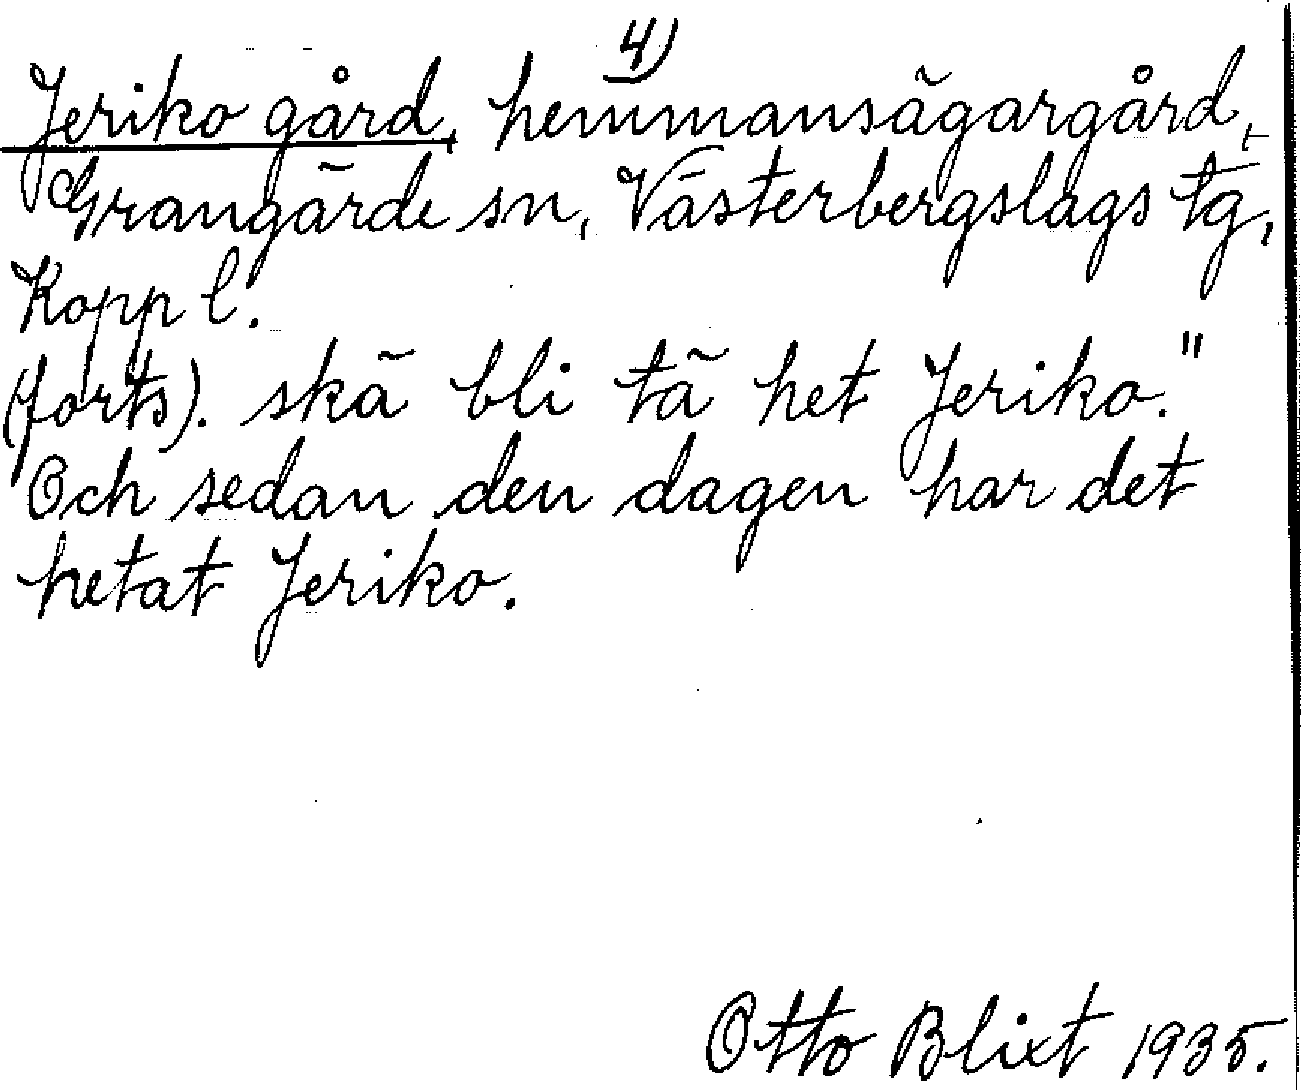 4)
Jeriko gård, hemmansägargård,
Grangärde sn, Västerbergslags tg,
Kopp l.
(forts). skä bli tä het Jeriko."
Och sedan den dagen har det
hetat Jeriko.
Otto Blixt 1935.